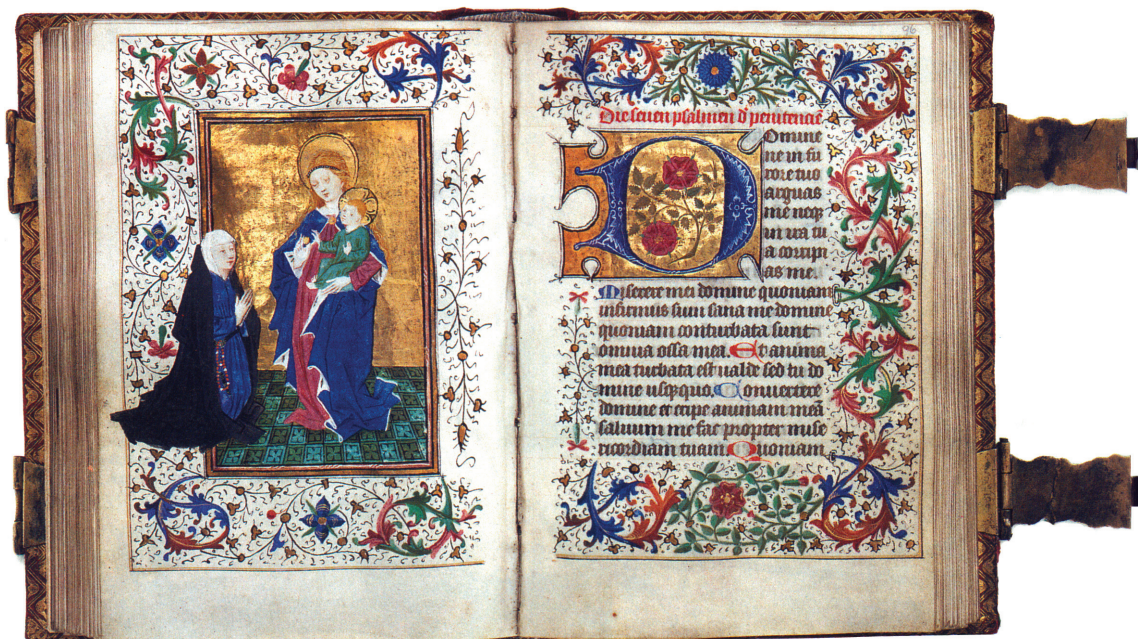 96
Die seven psalmen d penitencie
Domine
ne in fu
rore tuo
arguas
me neq
in ira tu
a corripi
as me
Miserere mei domine quoniam
infirmus sum sana me domine
quoniam conturbata sunt
omnia ossa mea. Et anima
mea turbata est ualde sed tu do
mine usquequo. Conuertere
domine et eripe animam meā
saluum me fac propter mise
ricordiam tuam. Quoniam